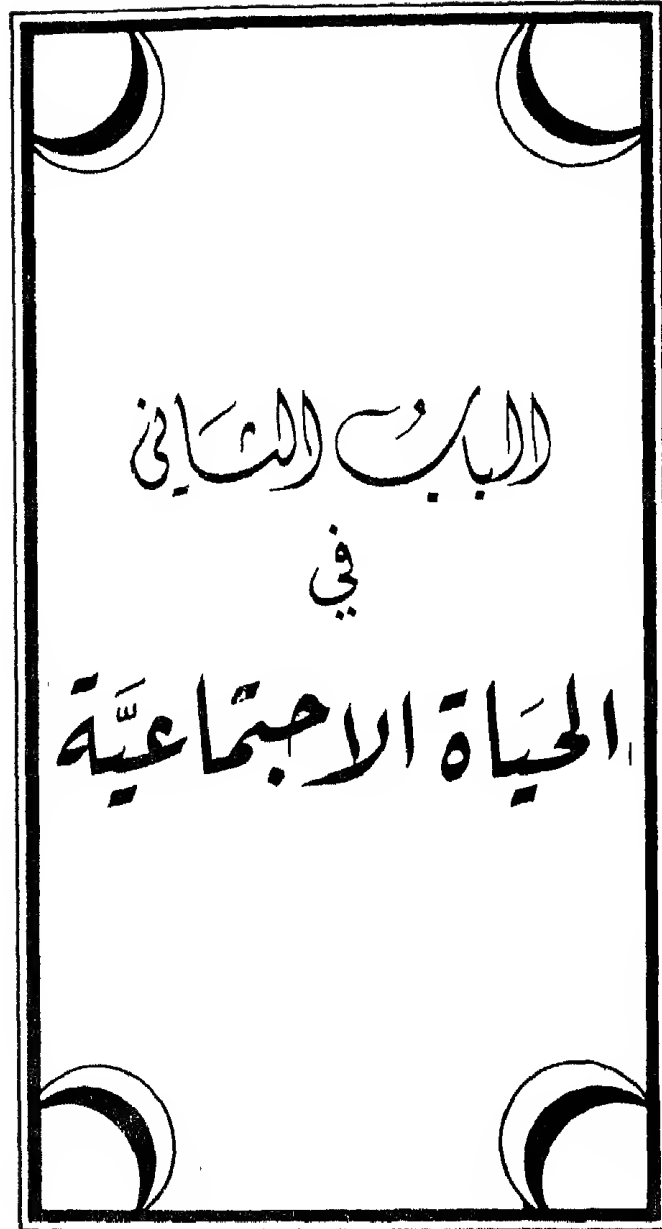 البابُ الثَاني
في
الحيَاة الاجتماعيَّة